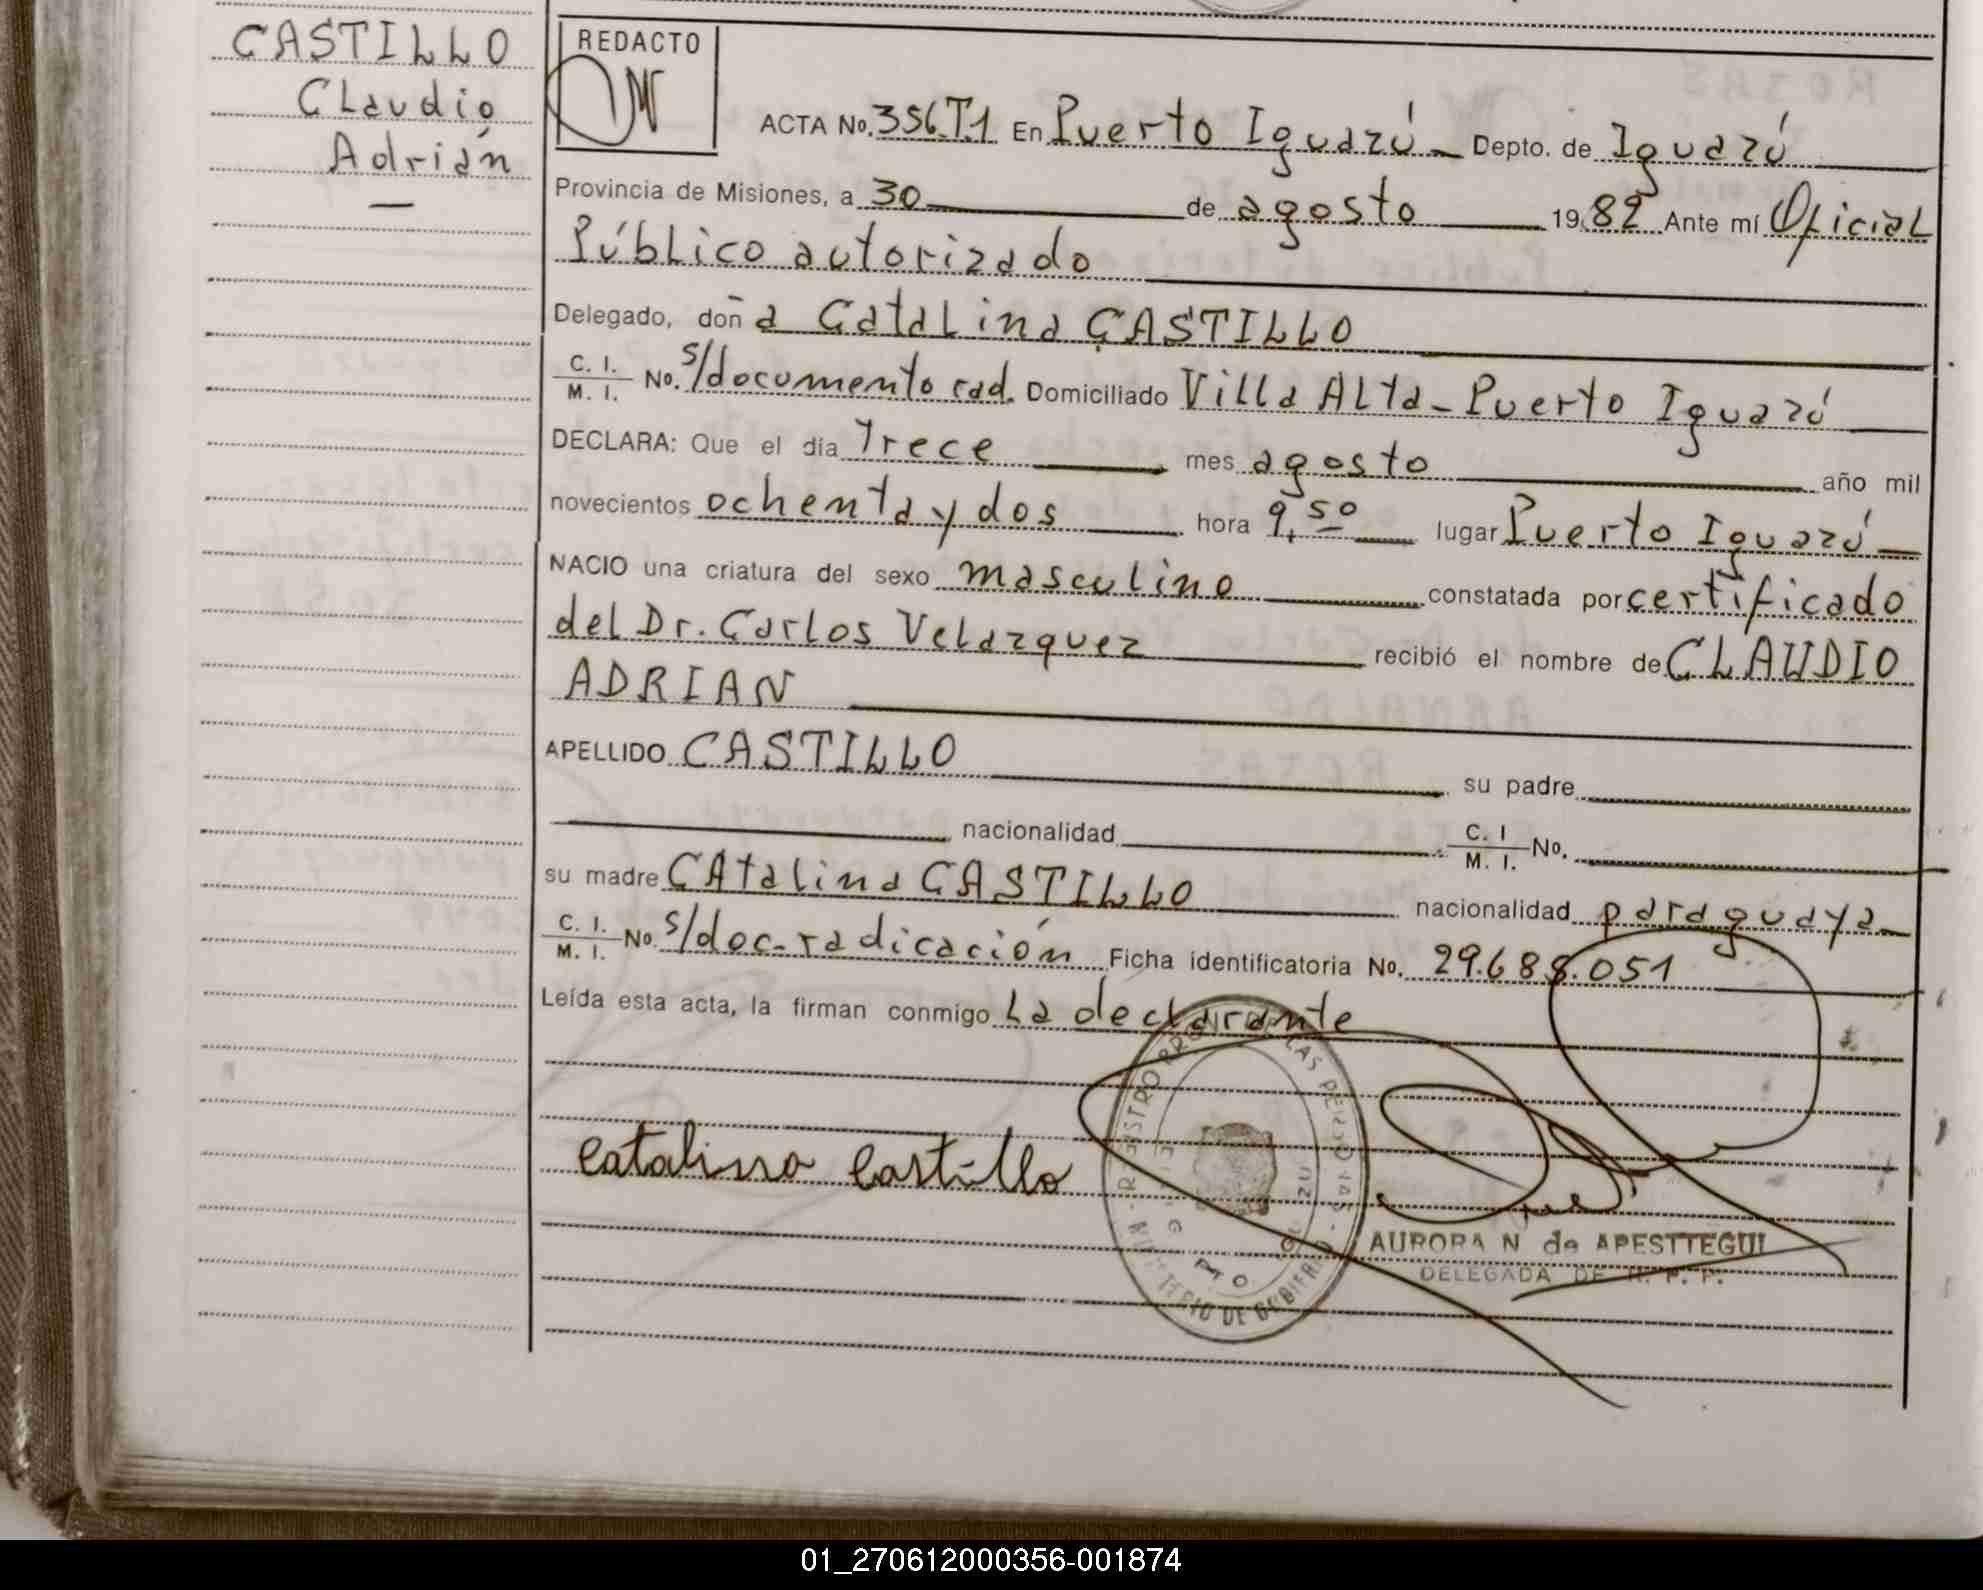 CASTILLO
Claudio
Adrián
REDACTO
ACTA No. 356.T.1 En Puerto Iguazú Depto. de Iguazú
Provincia de Misiones, a 30 de agosto 1982 Ante mí Oficial
Público autorizado
Delegado, doñ a Catalina CASTILLO
C. I. / M. I. No. s/documento rad. Domiciliado Villa Alta - Puerto Iguazú
DECLARA: Que el día Trece mes agosto año mil
novecientos ochenta y dos hora 9,50 lugar Puerto Iguazú
NACIO una criatura del sexo masculino constatada por certificado
del Dr. Carlos Velazquez recibió el nombre de CLAUDIO
ADRIAN
APELLIDO CASTILLO su padre
nacionalidad C. I / M. I. No.
su madre CAtalina CASTILLO nacionalidad paraguaya
C. I. / M. I. No. s/doc. radicación Ficha identificatoria No. 29.688.051
Leída esta acta, la firman conmigo La declarante
Catalina Castillo
AURORA N de APESTTEGUI
DELEGADA DE R. P. P.
01_270612000356-001874